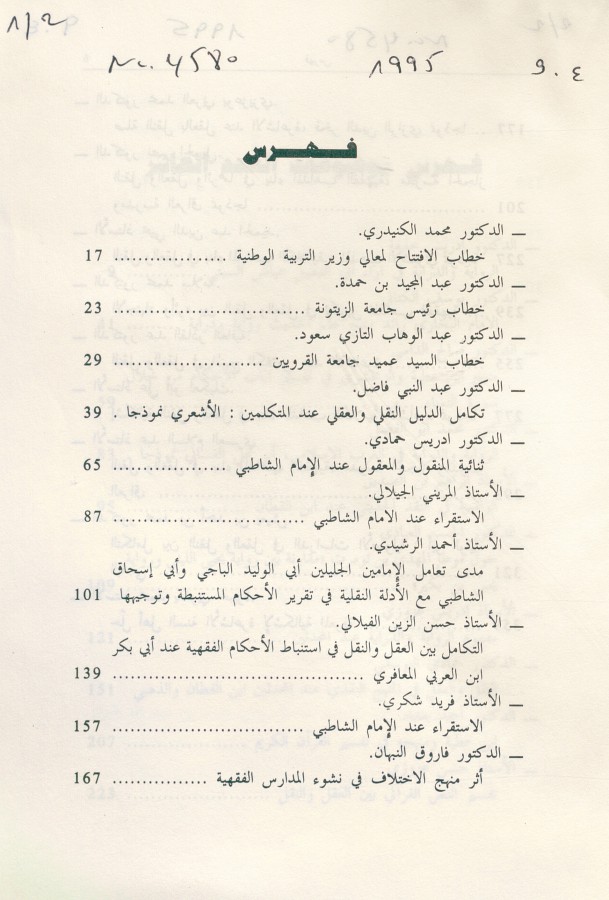 1/2
No. 4580 1995 9.4
فهرس
ـ الدكتور محمد الكنيدري.
خطاب الافتتاح لمعالي وزير التربية الوطنية .................. 17
ـ الدكتور عبد المجيد بن حمدة.
خطاب رئيس جامعة الزيتونة ............................ 23
ـ الدكتور عبد الوهاب التازي سعود.
خطاب السيد عميد جامعة القرويين ...................... 29
ـ الدكتور عبد النبي فاضل.
تكامل الدليل النقلي والعقلي عند المتكلمين : الأشعري نموذجا . 39
ـ الدكتور ادريس حمادي.
ثنائية المنقول والمعقول عند الإمام الشاطبي ................. 65
ـ الأستاذ المريني الجيلالي.
الاستقراء عند الامام الشاطبي ............................ 87
ـ الأستاذ أحمد الرشيدي.
مدى تعامل الإمامين الجليلين أبي الوليد الباجي وأبي إسحاق
الشاطبي مع الأدلة النقلية في تقرير الأحكام المستنبطة وتوجيهها 101
ـ الأستاذ حسن الزين الفيلالي.
التكامل بين العقل والنقل في استنباط الأحكام الفقهية عند أبي بكر
ابن العربي المعافري .................................... 139
ـ الأستاذ فريد شكري.
الاستقراء عند الإمام الشاطبي ............................ 157
ـ الدكتور فاروق النبهان.
أثر منهج الاختلاف في نشوء المدارس الفقهية .............. 167